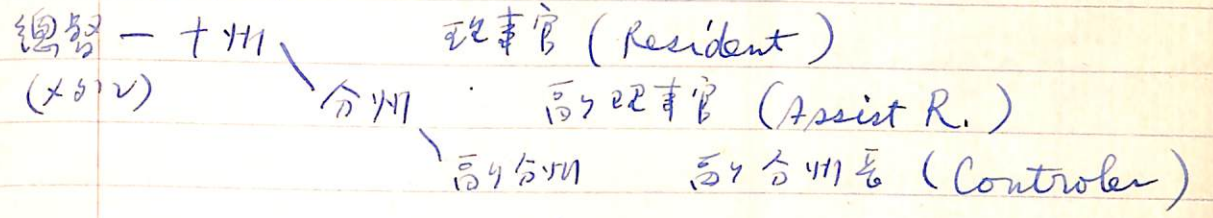 總督 — 十州 理事官 (Resident)
分州 副理事官 (Assist R.)
副分州 副分州長 (Controler)